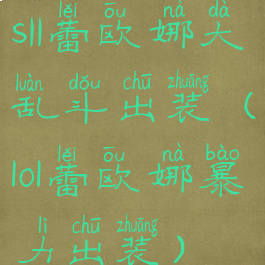 lěi ōu nà dà
sll蕾欧娜大
luàn dǒu chū zhuāng
乱斗出装（
lěi ōu nà bào
lol蕾欧娜暴
lì chū zhuāng
力出装）